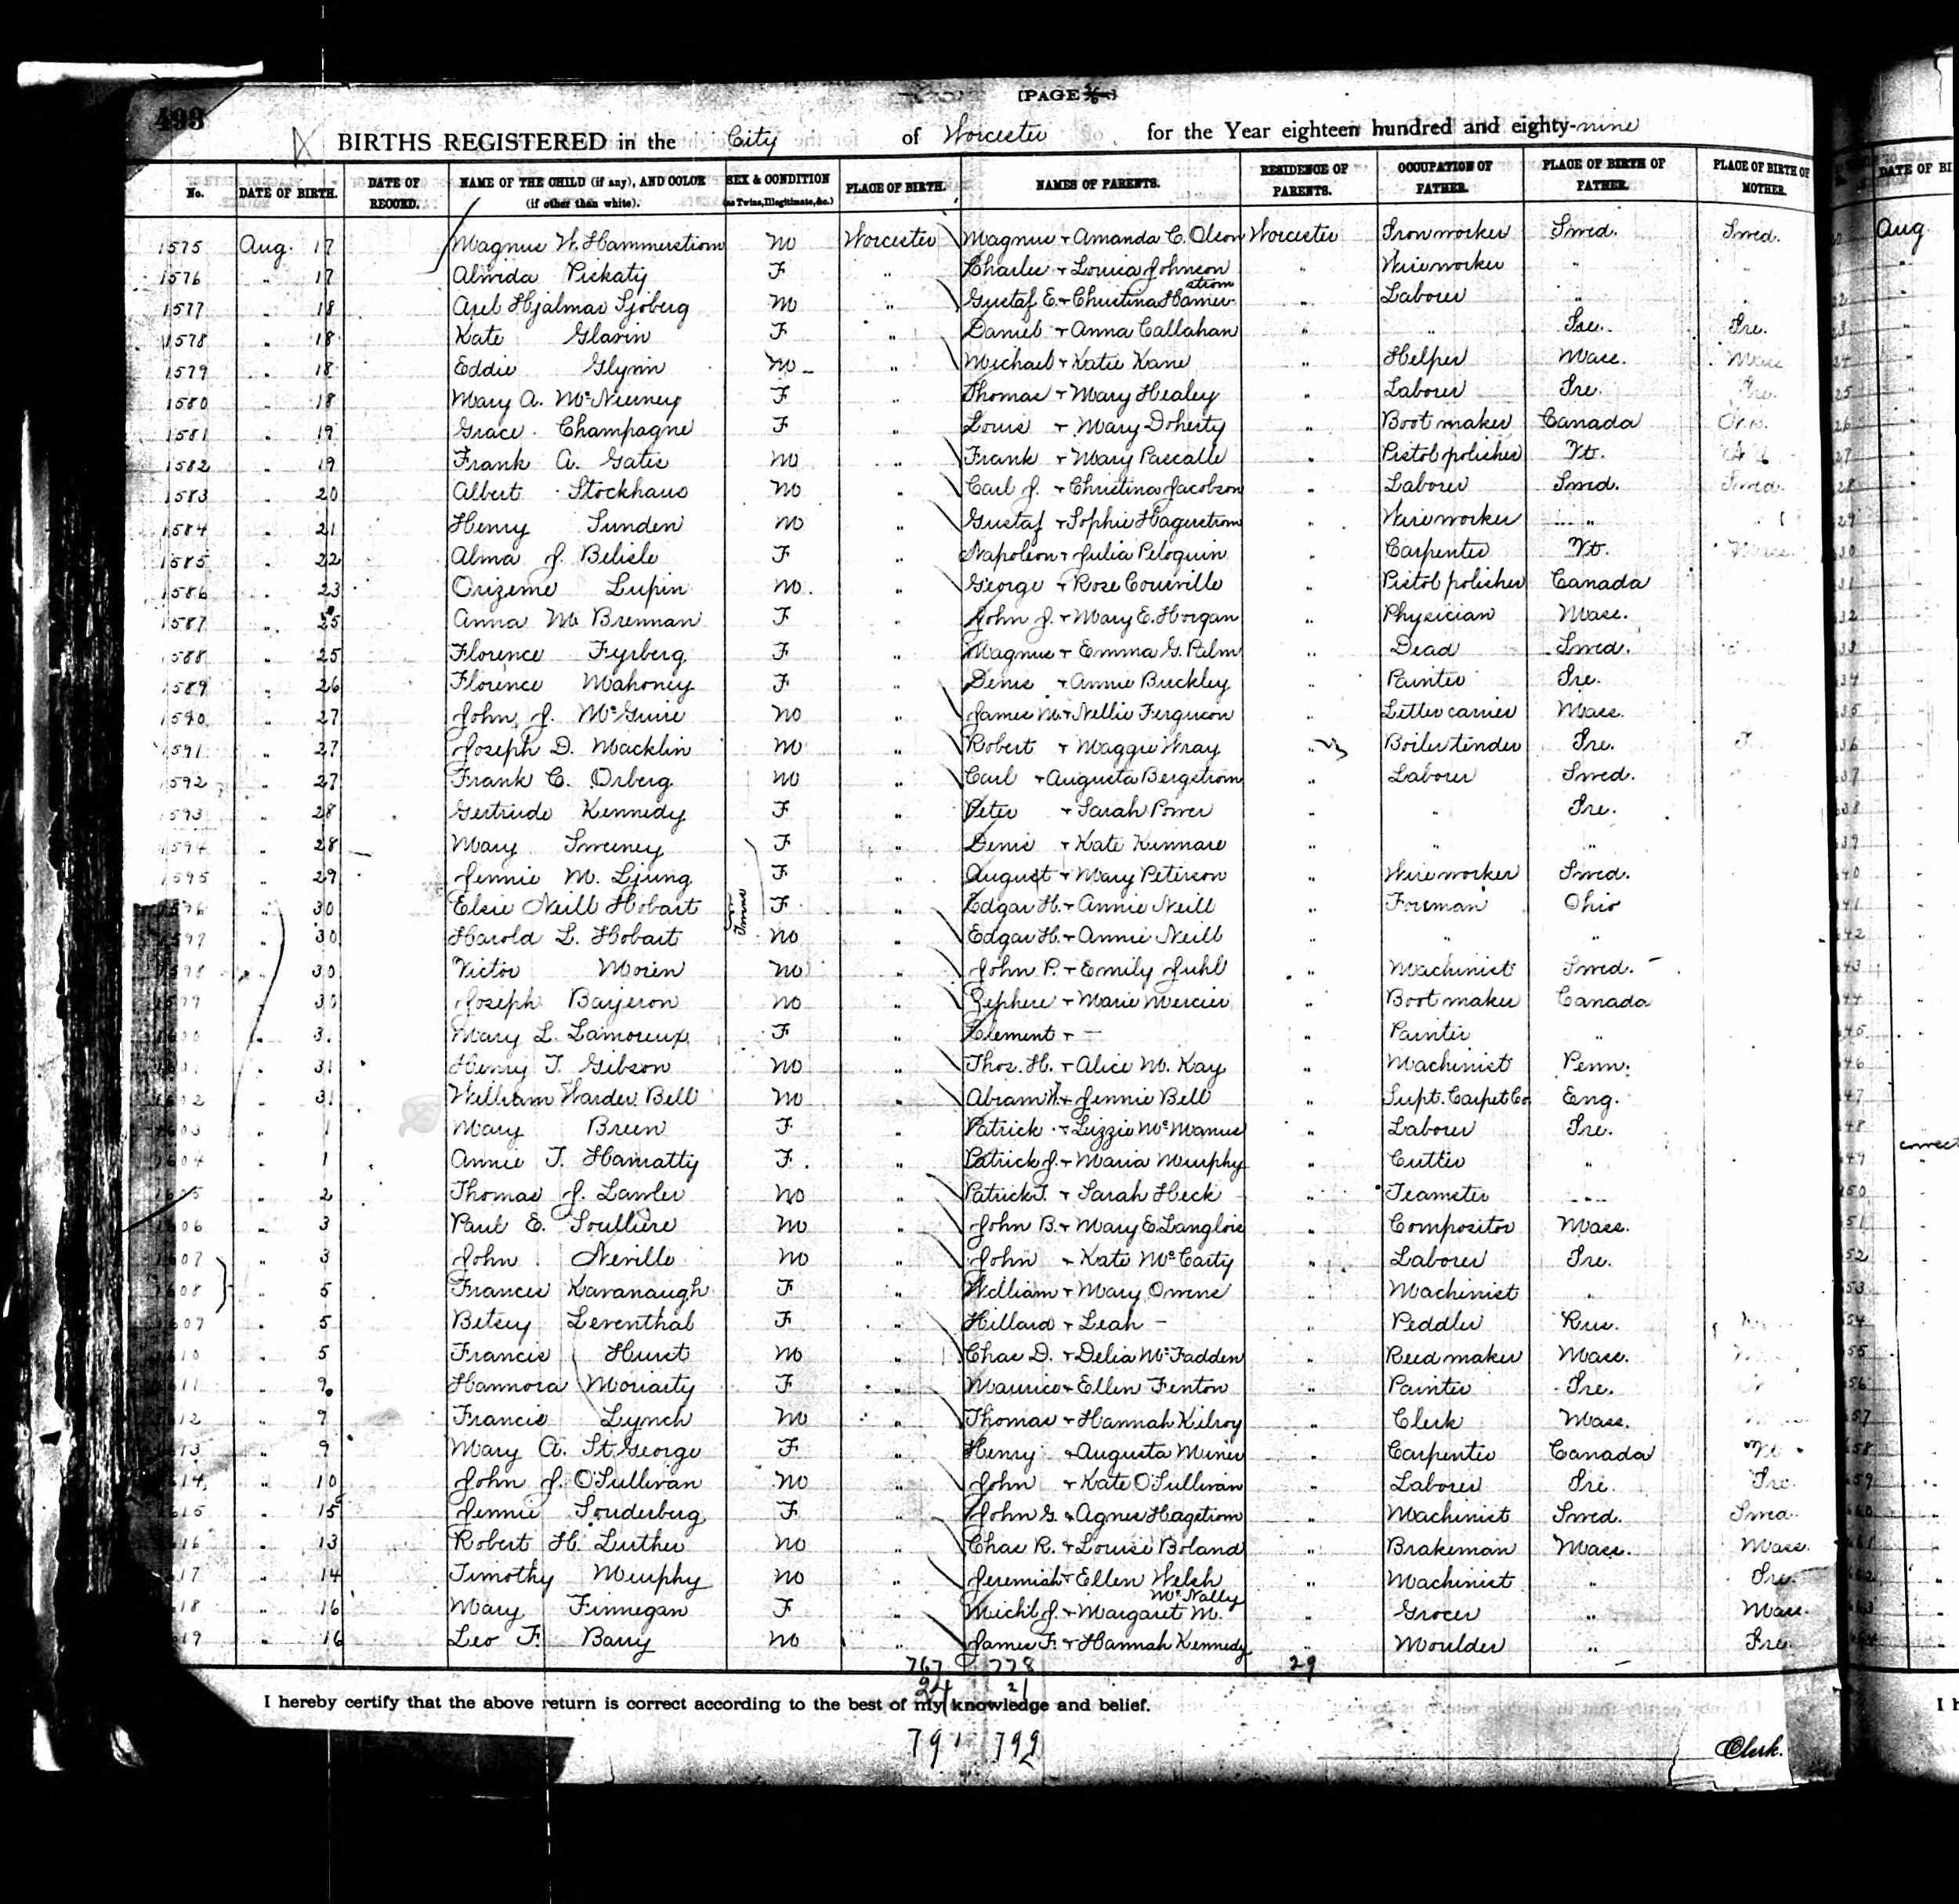 493
[PAGE
BIRTHS REGISTERED in the City of Worcester for the Year eighteen hundred and eighty-nine
No. DATE OF BIRTH. DATE OF RECORD. NAME OF THE CHILD (if any), AND COLOR (if other than white). SEX & CONDITION (as Twins, Illegitimate, &c.) PLACE OF BIRTH. NAMES OF PARENTS. RESIDENCE OF PARENTS. OCCUPATION OF FATHER. PLACE OF BIRTH OF FATHER. PLACE OF BIRTH OF MOTHER. DATE OF BI
1575 Aug. 17 Magnus W. Hammerstrom M Worcester Magnus + Amanda C. Olson Worcester Iron worker Swed. Swed. Aug
1576 " 17 Almida Pickaty F " Charles + Louisa Johnson " Wire worker " "
1577 " 18 Axel Hjalmar Sjoberg M " Gustaf E. + Christina Hamerstrom " Laborer " "
1578 " 18 Kate Glavin F " Daniel + Anna Callahan " " Ire. Ire.
1579 " 18 Eddie Glynn M " Michael + Katie Kane " Helper Mass. Mass
1580 " 18 Mary A. McNerney F " Thomas + Mary Healey " Laborer Ire. Ire.
1581 " 19 Grace Champagne F " Louis + Mary Doherty " Boot maker Canada
1582 " 19 Frank A. Gates M " Frank + Mary Pascalle " Pistol polisher Vt.
1583 " 20 Albert Stockhaus M " Carl J. + Christina Jacobson " Laborer Swed. Swed.
1584 " 21 Henry Sunden M " Gustaf + Sophie Hagerstrom " Wire worker "
1585 " 22 Alma J. Belisle F " Napoleon + Julia Peloquin " Carpenter Vt. Mass.
1586 " 23 Orizeme Lupin M " George + Rose Courville " Pistol polisher Canada
1587 " 25 Anna M Brennan F " John J. + Mary E. Horgan " Physician Mass.
1588 " 25 Florence Fyrberg F " Magnus + Emma G. Palm " Dead Swed.
1589 " 26 Florence Mahoney F " Denis + Annie Buckley " Painter Ire.
1590 " 27 John J. McGuire M " James M. + Nellie Ferguson " Letter carrier Mass.
1591 " 27 Joseph D. Macklin M " Robert + Maggie Wray " Boiler tender Ire.
1592 " 27 Frank C. Orberg M " Carl + Augusta Bergstrom " Laborer Swed.
1593 " 28 Gertrude Kennedy F " Peter + Sarah Power " " Ire.
1594 " 28 Mary Sweeney F " Denis + Kate Kinnare " " "
1595 " 29 Jennie M. Ljung F " August + Mary Peterson " Wire worker Swed.
1596 " 30 Elsie Neill Hobart Twins F " Edgar H. + Annie Neill " Foreman Ohio
1597 " 30 Harold L. Hobart M " Edgar H. + Annie Neill " " "
1598 " 30 Victor Morin M " John P. + Emily Juhl " Machinist Swed.
1599 " 30 Joseph Barjeron M " Zephere + Marie Mercier " Boot maker Canada
1600 " 3. Mary L. Lamoreux F " Clement + — " Painter "
1601 " 31 Henry T. Gibson M " Thos. H. + Alice M. Kay " Machinist Penn.
1602 " 31 William Warder Bell M " Abram W. + Jennie Bell " Supt. Carpet Co. Eng.
1603 " 1 Mary Breen F " Patrick + Lizzie McManus " Laborer Ire.
1604 " 1 Annie T. Hamatty F " Patrick J. + Maria Murphy " Cutter "
1605 " 2 Thomas J. Lawler M " Patrick T. + Sarah Heck " Teamster "
1606 " 3 Paul E. Soulliere M " John B. + Mary E. Langlois " Compositor Mass.
1607 " 3 John Neville M " John + Kate McCarty " Laborer Ire.
1608 " 5 Frances Kavanaugh F " William + Mary Owens " Machinist "
1609 " 5 Betsey Leventhal F " Hillard + Leah — " Peddler Rus.
1610 " 5 Francis Hurst M " Chas D. + Delia McFadden " Reed maker Mass.
1611 " 9 Hannora Moriarty F " Maurice + Ellen Fenton " Painter Ire.
1612 " 9 Francis Lynch M " Thomas + Hannah Kilroy " Clerk Mass.
1613 " 9 Mary A. St George F " Henry + Augusta Munier " Carpenter Canada Vt
1614 " 10 John J. O'Sullivan M " John + Kate O'Sullivan " Laborer Ire. Ire.
1615 " 15 Jennie Souderberg F " John G. + Agnes Hagstrom " Machinist Swed. Swed.
1616 " 13 Robert H. Luther M " Chas R. + Louise Boland " Brakeman Mass. Mass.
1617 " 14 Timothy Murphy M " Jeremiah + Ellen Welsh " Machinist " Ire.
1618 " 16 Mary Finnegan F " Michl J. + Margaret M. McNally " Grocer " Mass.
1619 " 16 Leo F. Barry M " James F. + Hannah Kennedy " Moulder " Ire.
767 778 29
24 21
I hereby certify that the above return is correct according to the best of my knowledge and belief.
791 799
Clerk.